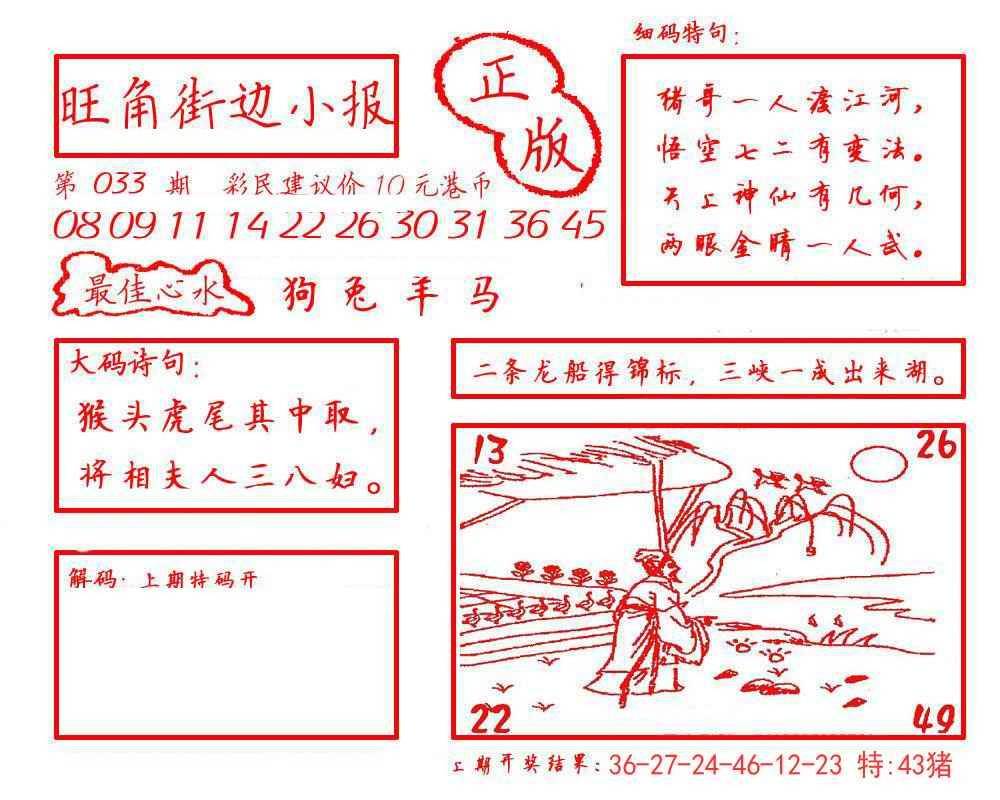 旺角街边小报
正版
第 033 期 彩民建议价10元港币
08 09 11 14 22 26 30 31 36 45
最佳心水 狗 兔 羊 马
细码特句：
猪哥一人渡江河，
悟空七二有变法。
天上神仙有几何，
两眼金睛一人武。
大码诗句：
猴头虎尾其中取，
将相夫人三八妇。
二条龙船得锦标，三峡一成出来湖。
13
26
22
49
解码·上期特码开
上期开奖结果：36-27-24-46-12-23 特:43猪